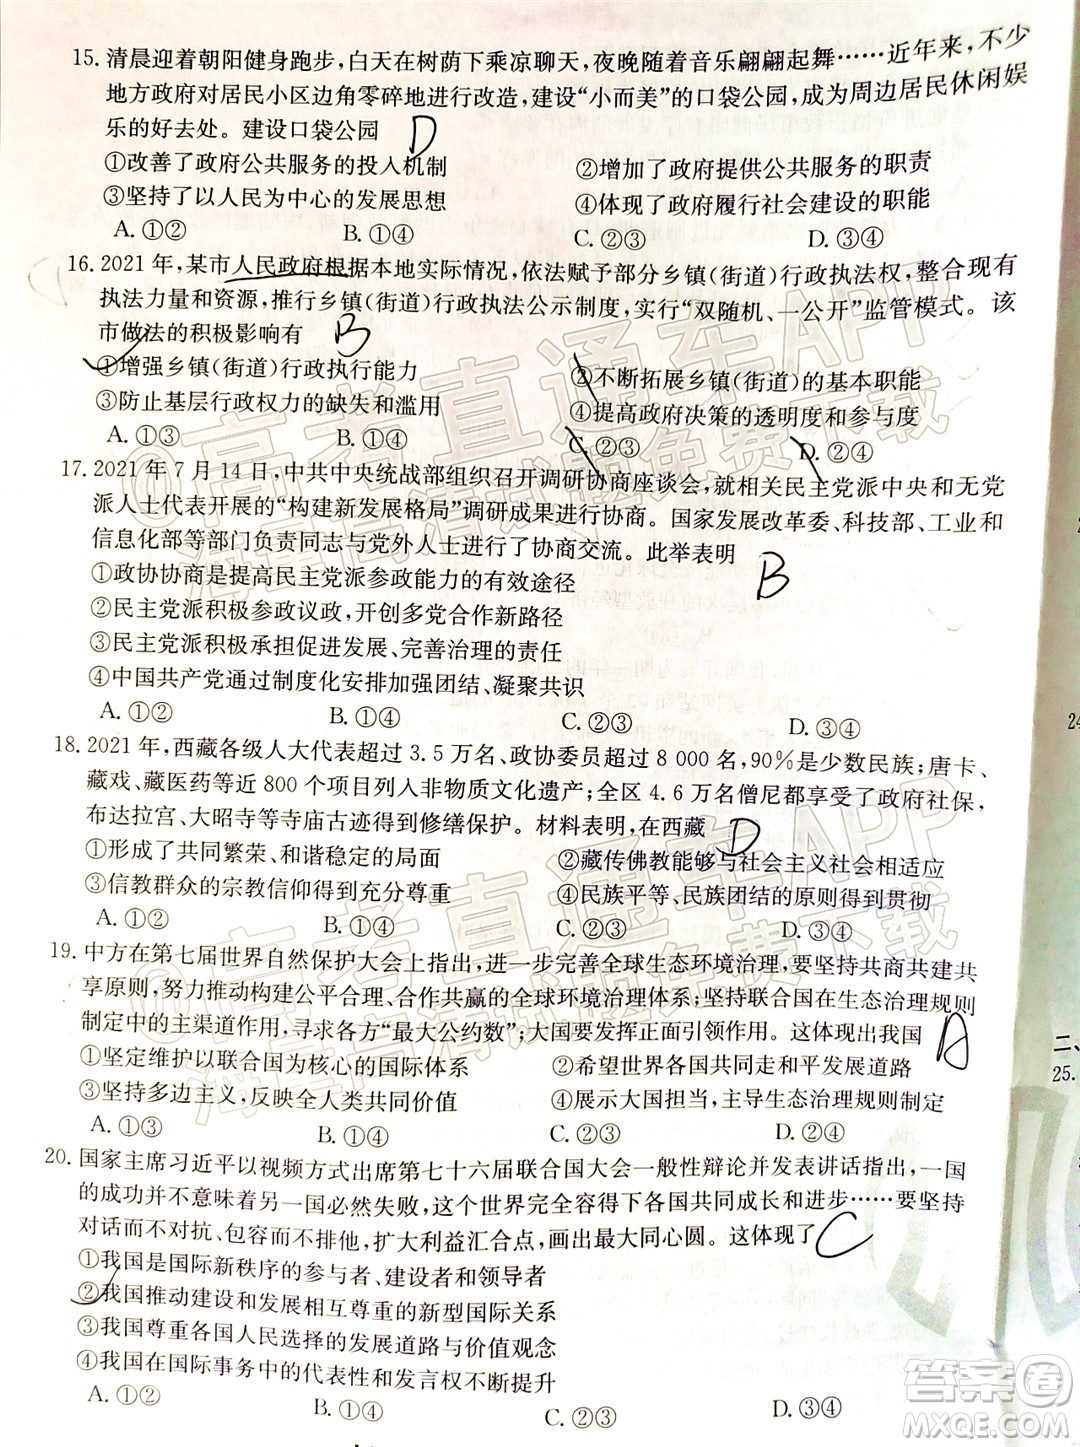 15. 清晨迎着朝阳健身跑步，白天在树荫下乘凉聊天，夜晚随着音乐翩翩起舞……近年来，不少
地方政府对居民小区边角零碎地进行改造，建设“小而美”的口袋公园，成为周边居民休闲娱
乐的好去处。建设口袋公园 D
①改善了政府公共服务的投入机制 ②增加了政府提供公共服务的职责
③坚持了以人民为中心的发展思想 ④体现了政府履行社会建设的职能
A. ①② B. ①④ C. ②③ D. ③④
16. 2021年，某市人民政府根据本地实际情况，依法赋予部分乡镇(街道)行政执法权，整合现有
执法力量和资源，推行乡镇(街道)行政执法公示制度，实行“双随机、一公开”监管模式。该
市做法的积极影响有 B
①增强乡镇(街道)行政执行能力 ②不断拓展乡镇(街道)的基本职能
③防止基层行政权力的缺失和滥用 ④提高政府决策的透明度和参与度
A. ①③ B. ①④ C. ②③ D. ②④
17. 2021年7月14日，中共中央统战部组织召开调研协商座谈会，就相关民主党派中央和无党
派人士代表开展的“构建新发展格局”调研成果进行协商。国家发展改革委、科技部、工业和
信息化部等部门负责同志与党外人士进行了协商交流。此举表明 B
①政协协商是提高民主党派参政能力的有效途径
②民主党派积极参政议政，开创多党合作新路径
③民主党派积极承担促进发展、完善治理的责任
④中国共产党通过制度化安排加强团结、凝聚共识
A. ①② B. ①④ C. ②③ D. ③④
18. 2021年，西藏各级人大代表超过3.5万名、政协委员超过8 000名，90%是少数民族；唐卡、
藏戏、藏医药等近800个项目列入非物质文化遗产；全区4.6万名僧尼都享受了政府社保，
布达拉宫、大昭寺等寺庙古迹得到修缮保护。材料表明，在西藏 D
①形成了共同繁荣、和谐稳定的局面 ②藏传佛教能够与社会主义社会相适应
③信教群众的宗教信仰得到充分尊重 ④民族平等、民族团结的原则得到贯彻
A. ①② B. ①④ C. ②③ D. ③④
19. 中方在第七届世界自然保护大会上指出，进一步完善全球生态环境治理，要坚持共商共建共
享原则，努力推动构建公平合理、合作共赢的全球环境治理体系；坚持联合国在生态治理规则
制定中的主渠道作用，寻求各方“最大公约数”；大国要发挥正面引领作用。这体现出我国 A
①坚定维护以联合国为核心的国际体系 ②希望世界各国共同走和平发展道路
③坚持多边主义，反映全人类共同价值 ④展示大国担当，主导生态治理规则制定
A. ①③ B. ①④ C. ②③ D. ②④
20. 国家主席习近平以视频方式出席第七十六届联合国大会一般性辩论并发表讲话指出，一国
的成功并不意味着另一国必然失败，这个世界完全容得下各国共同成长和进步……要坚持
对话而不对抗、包容而不排他，扩大利益汇合点，画出最大同心圆。这体现了 C
①我国是国际新秩序的参与者、建设者和领导者
②我国推动建设和发展相互尊重的新型国际关系
③我国尊重各国人民选择的发展道路与价值观念
④我国在国际事务中的代表性和发言权不断提升
A. ①② B. ①④ C. ②③ D. ③④
24
二、
25.
@高考直通车APP
海量高清试题免费下载
@高考直通车APP
海量高清试题免费下载
答案圈
MXQE.COM